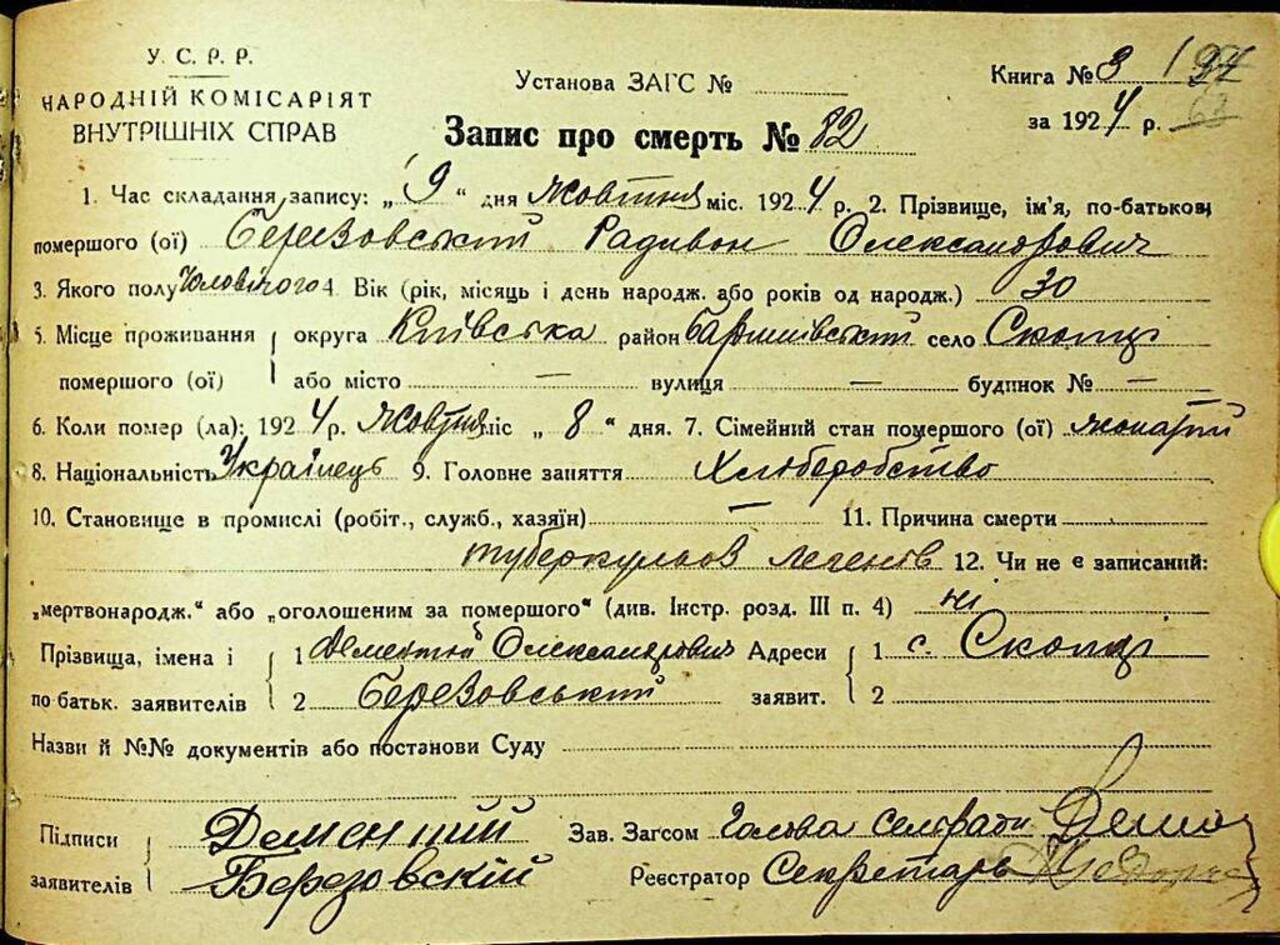 У. С. Р. Р.
НАРОДНІЙ КОМІСАРІЯТ
ВНУТРІШНІХ СПРАВ
Установа ЗАГС №
Книга № 3
за 1924 р.
Запис про смерть № 82
1. Час складання запису: „9“ дня жовтня міс. 1924 р. 2. Прізвище, ім'я, по-батькові
помершого (ої) Березовський Радивон Олександрович
3. Якого полу чоловічого 4. Вік (рік, місяць і день народж. або років од народж.) 30
5. Місце проживання округа Київська район Баришівський село Скопці
помершого (ої) або місто — вулиця — будинок № —
6. Коли помер (ла): 1924 р. жовтня міс „8“ дня. 7. Сімейний стан помершого (ої) жонатий
8. Національність Українець 9. Головне заняття Хліберобство
10. Становище в промислі (робіт., служб., хазяїн) — 11. Причина смерти
туберкульоз легенів 12. Чи не є записаний:
„мертвонародж.“ або „оголошеним за помершого“ (див. Інстр. розд. III п. 4) ні
Прізвища, імена і 1 Дементій Олександрович Адреси 1 с. Скопці
по батьк. заявителів 2 Березовський заявит. 2
Назви й №№ документів або постанови Суду
Підписи Дементий Зав. Загсом Голова сельради
заявителів Березовскій Реєстратор Секретарь